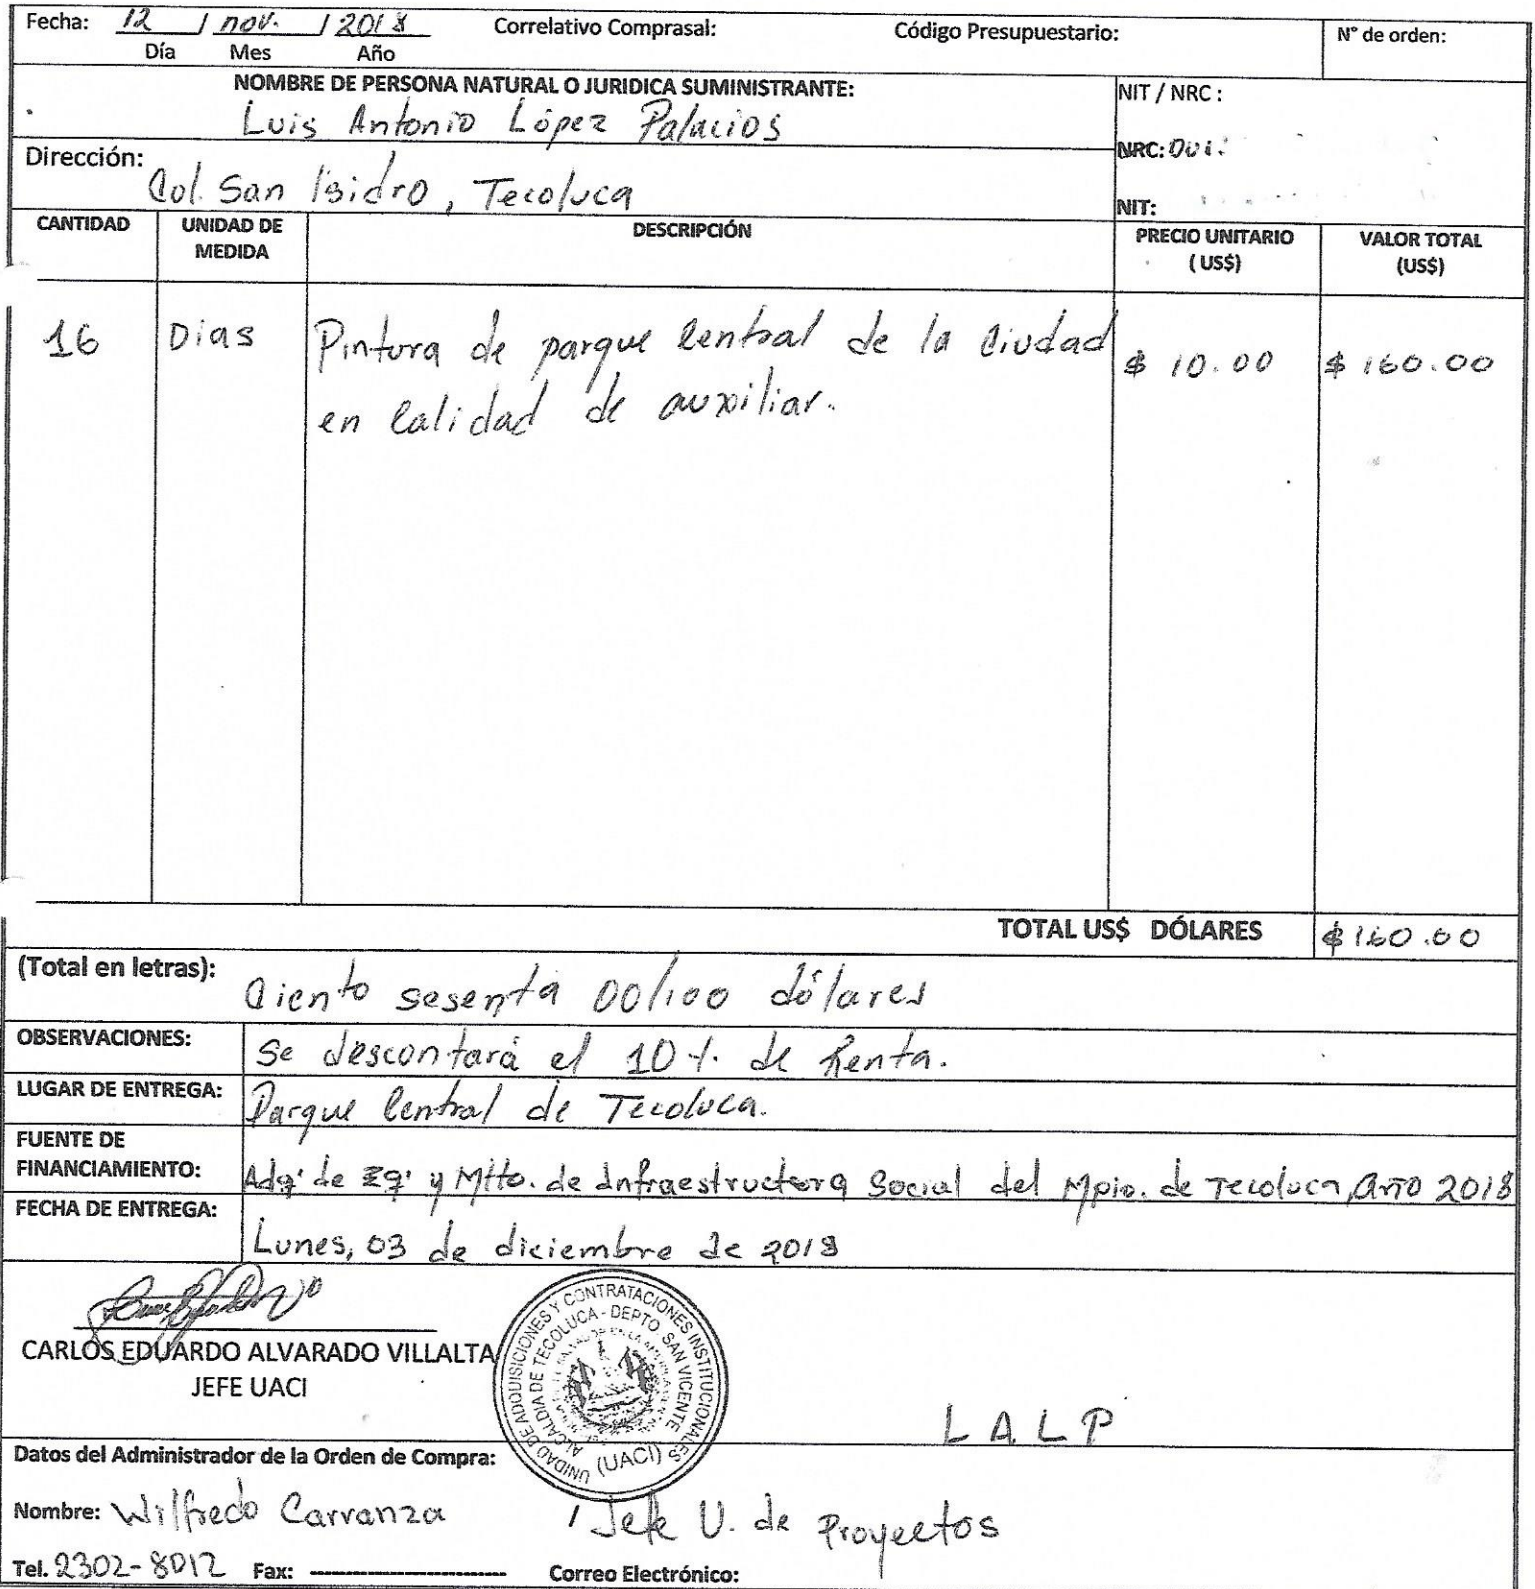 Fecha: 12 / nov. / 2018 Correlativo Comprasal: Código Presupuestario: N° de orden:
Día Mes Año
NOMBRE DE PERSONA NATURAL O JURIDICA SUMINISTRANTE: NIT / NRC :
Luis Antonio López Palacios
Dirección: NRC:
Col. San Isidro, Tecoluca
NIT:
CANTIDAD UNIDAD DE MEDIDA DESCRIPCIÓN PRECIO UNITARIO ( US$) VALOR TOTAL (US$)
16 Dias Pintura de parque Central de la Ciudad $ 10.00 $ 160.00
en Calidad de auxiliar.
TOTAL US$ DÓLARES $160.00
(Total en letras): Ciento sesenta 00/100 dólares
OBSERVACIONES: Se descontará el 10%. de Renta.
LUGAR DE ENTREGA: Parque Central de Tecoluca.
FUENTE DE
FINANCIAMIENTO: Adq. de Eq. y Mtto. de Infraestructura Social del Mpio. de Tecoluca, año 2018
FECHA DE ENTREGA:
Lunes, 03 de diciembre de 2018
CARLOS EDUARDO ALVARADO VILLALTA
JEFE UACI
UNIDAD DE ADQUISICIONES Y CONTRATACIONES INSTITUCIONALES
ALCALDIA DE TECOLUCA - DEPTO. SAN VICENTE
(UACI)
L A L P
Datos del Administrador de la Orden de Compra:
Nombre: Wilfredo Carranza / Jefe U. de Proyectos
Tel. 2302-8012 Fax: ---------------- Correo Electrónico: